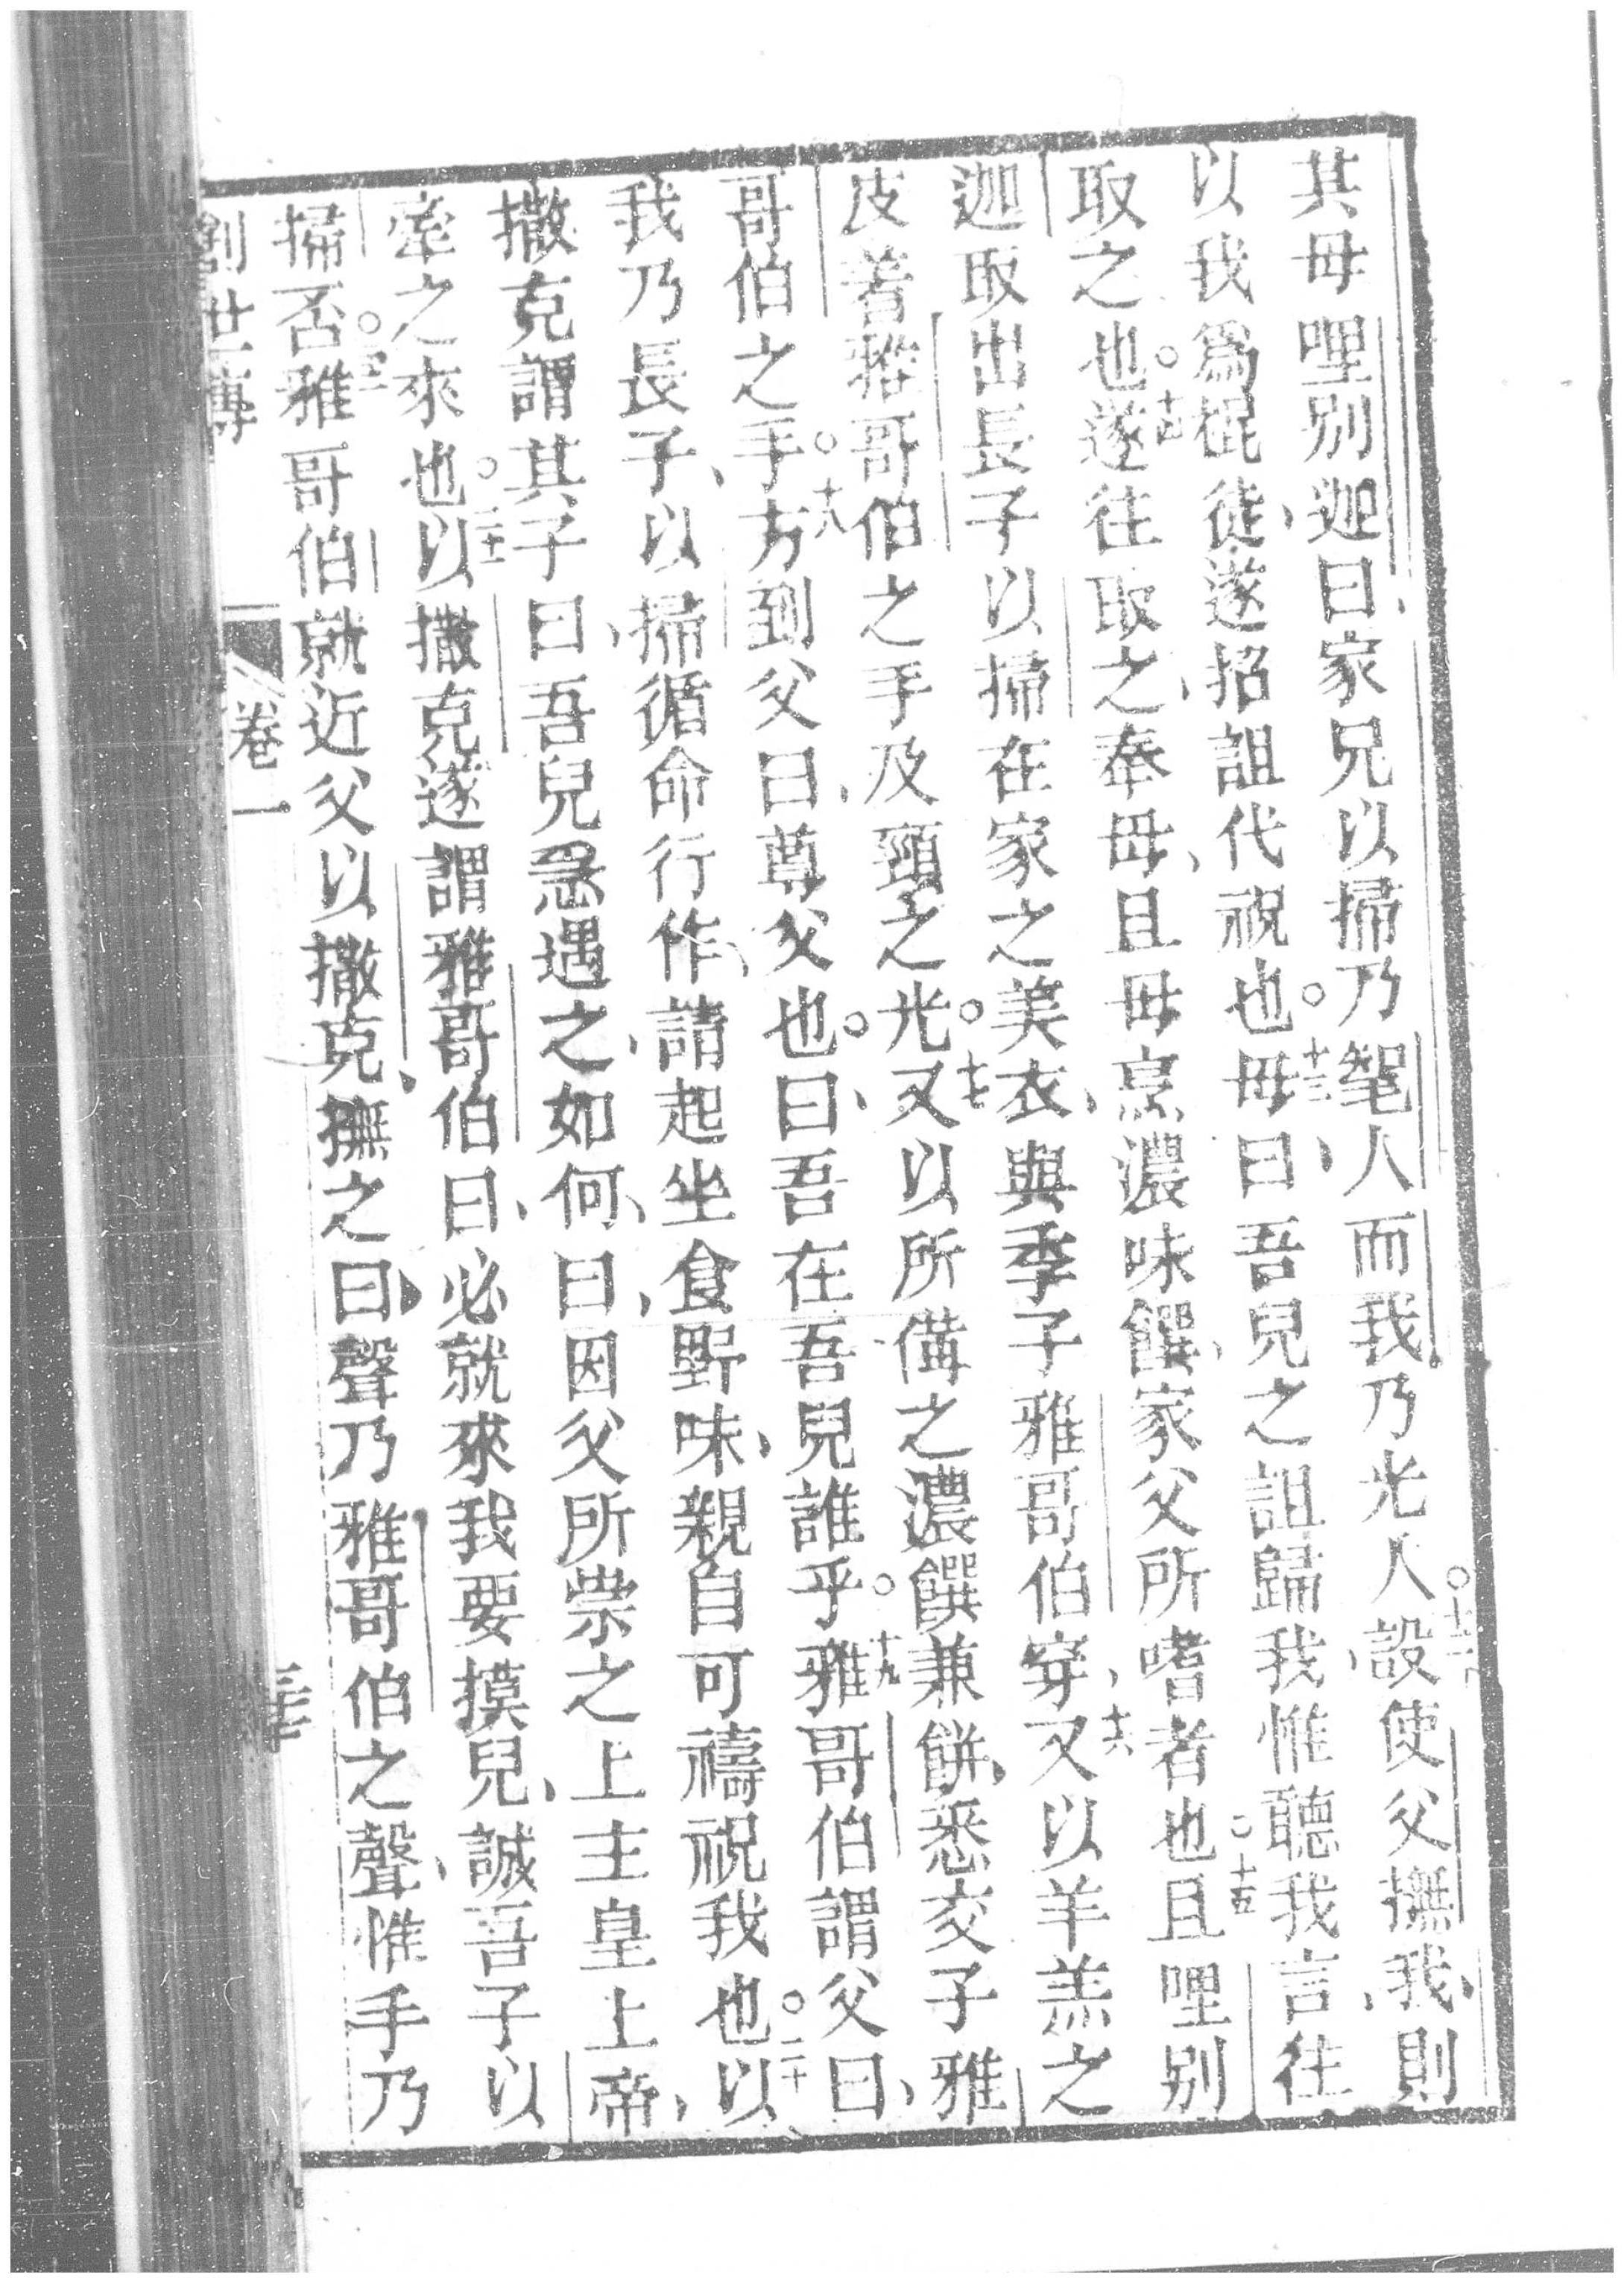 其母哩別迦曰、家兄以掃乃髦人、而我乃光人、○十二設使父撫我、則
以我爲棍徒、遂招詛代祝也○十三母曰、吾兒之詛歸我、惟聽我言、往
取之也○十四遂往取之、奉母、且母烹濃味饌、家父所嗜者也○十五且哩別
迦取出長子以掃在家之美衣、與季子雅哥伯穿、○十六又以羊羔之
皮着雅哥伯之手及頸之光○十七又以所備之濃饌兼餅、悉交子雅
哥伯之手○十八方到父曰、尊父也○曰、吾在吾兒誰乎○十九雅哥伯謂父曰、
我乃長子、以掃循命行作、請起坐食野味、親自可禱祝我也○二十以
撒克謂其子曰、吾兒急遇之、如何、曰、因父所崇之上主皇上帝、
牽之來也○二十一以撒克遂謂雅哥伯曰、必就來我要摸兒、誠吾子以
掃否○二十二雅哥伯就近父以撒克、撫之曰、聲乃雅哥伯之聲、惟手乃
創世傳 卷一 三十